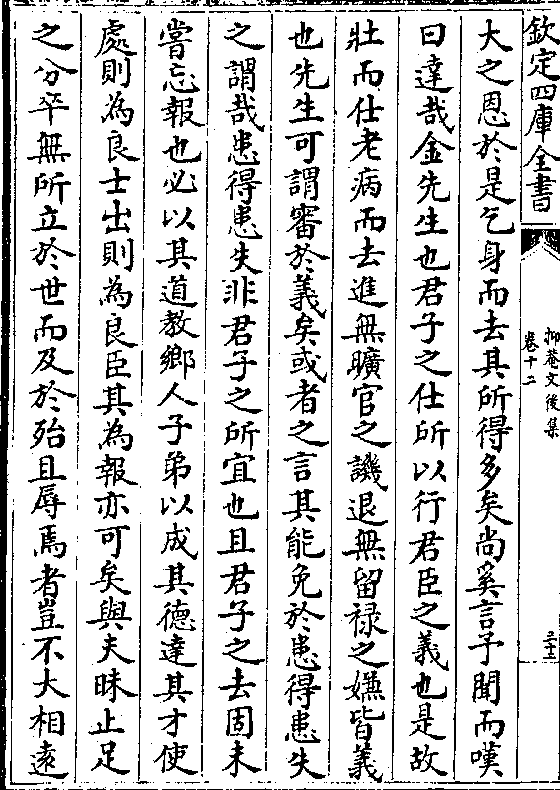 欽定四庫全書
抑菴文後集
卷十二
三十三
大之恩於是乞身而去其所得多矣尚奚言予聞而嘆
曰達哉金先生也君子之仕所以行君臣之義也是故
壯而仕老病而去進無曠官之譏退無留禄之嫌皆義
也先生可謂審於義矣或者之言其能免於患得患失
之謂哉患得患失非君子之所宜也且君子之去固未
嘗忘報也必以其道教鄉人子弟以成其德達其才使
處則為良士出則為良臣其為報亦可矣與夫昧止足
之分卒無所立於世而及於殆且辱焉者豈不大相逺